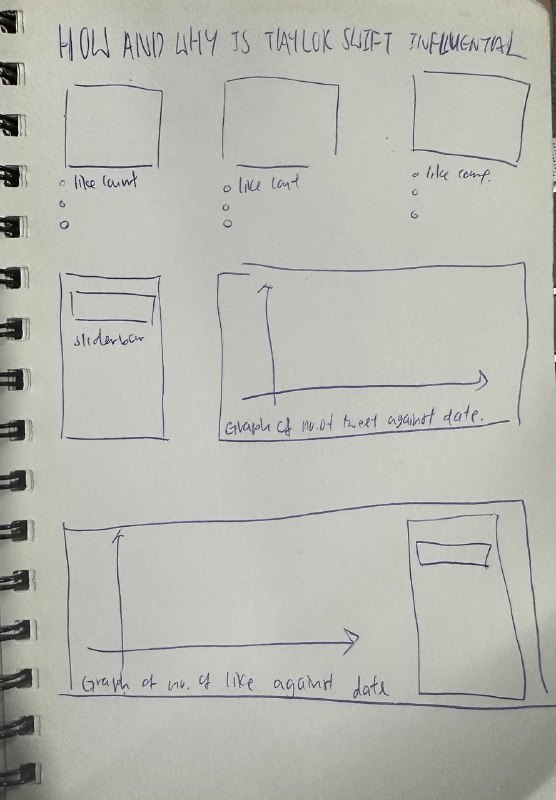 HOW AND WHY IS TAYLOR SWIFT INFLUENTIAL
like count
like
like
sliderbar
Graph of no. of tweet against date.
Graph of no. of like against date